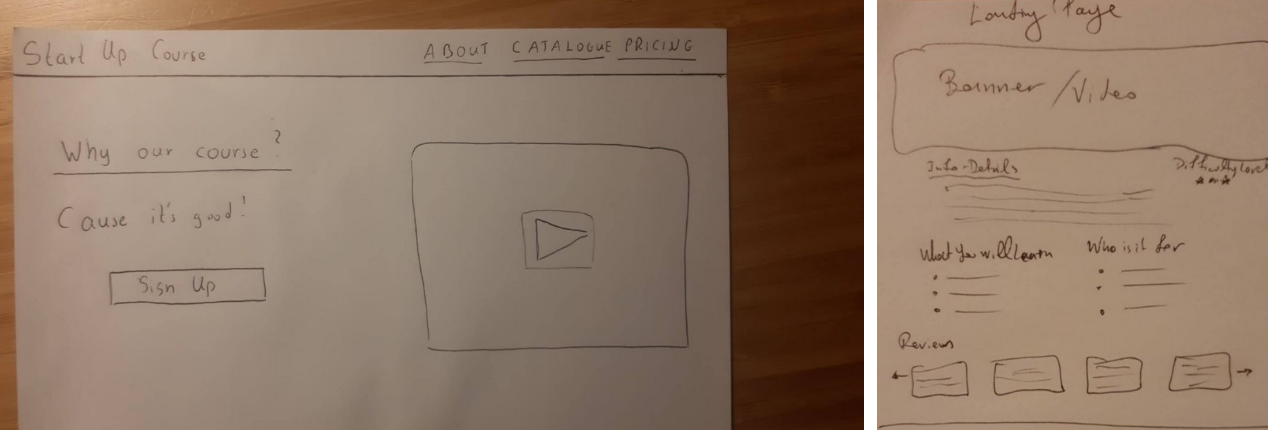 Start Up Course ABOUT CATALOGUE PRICING
Why our course?
Cause it's good!
Sign Up
Landing Page
Banner/Video
Info-Details
Difficulty Level
What you will learn
Who is it for
Reviews